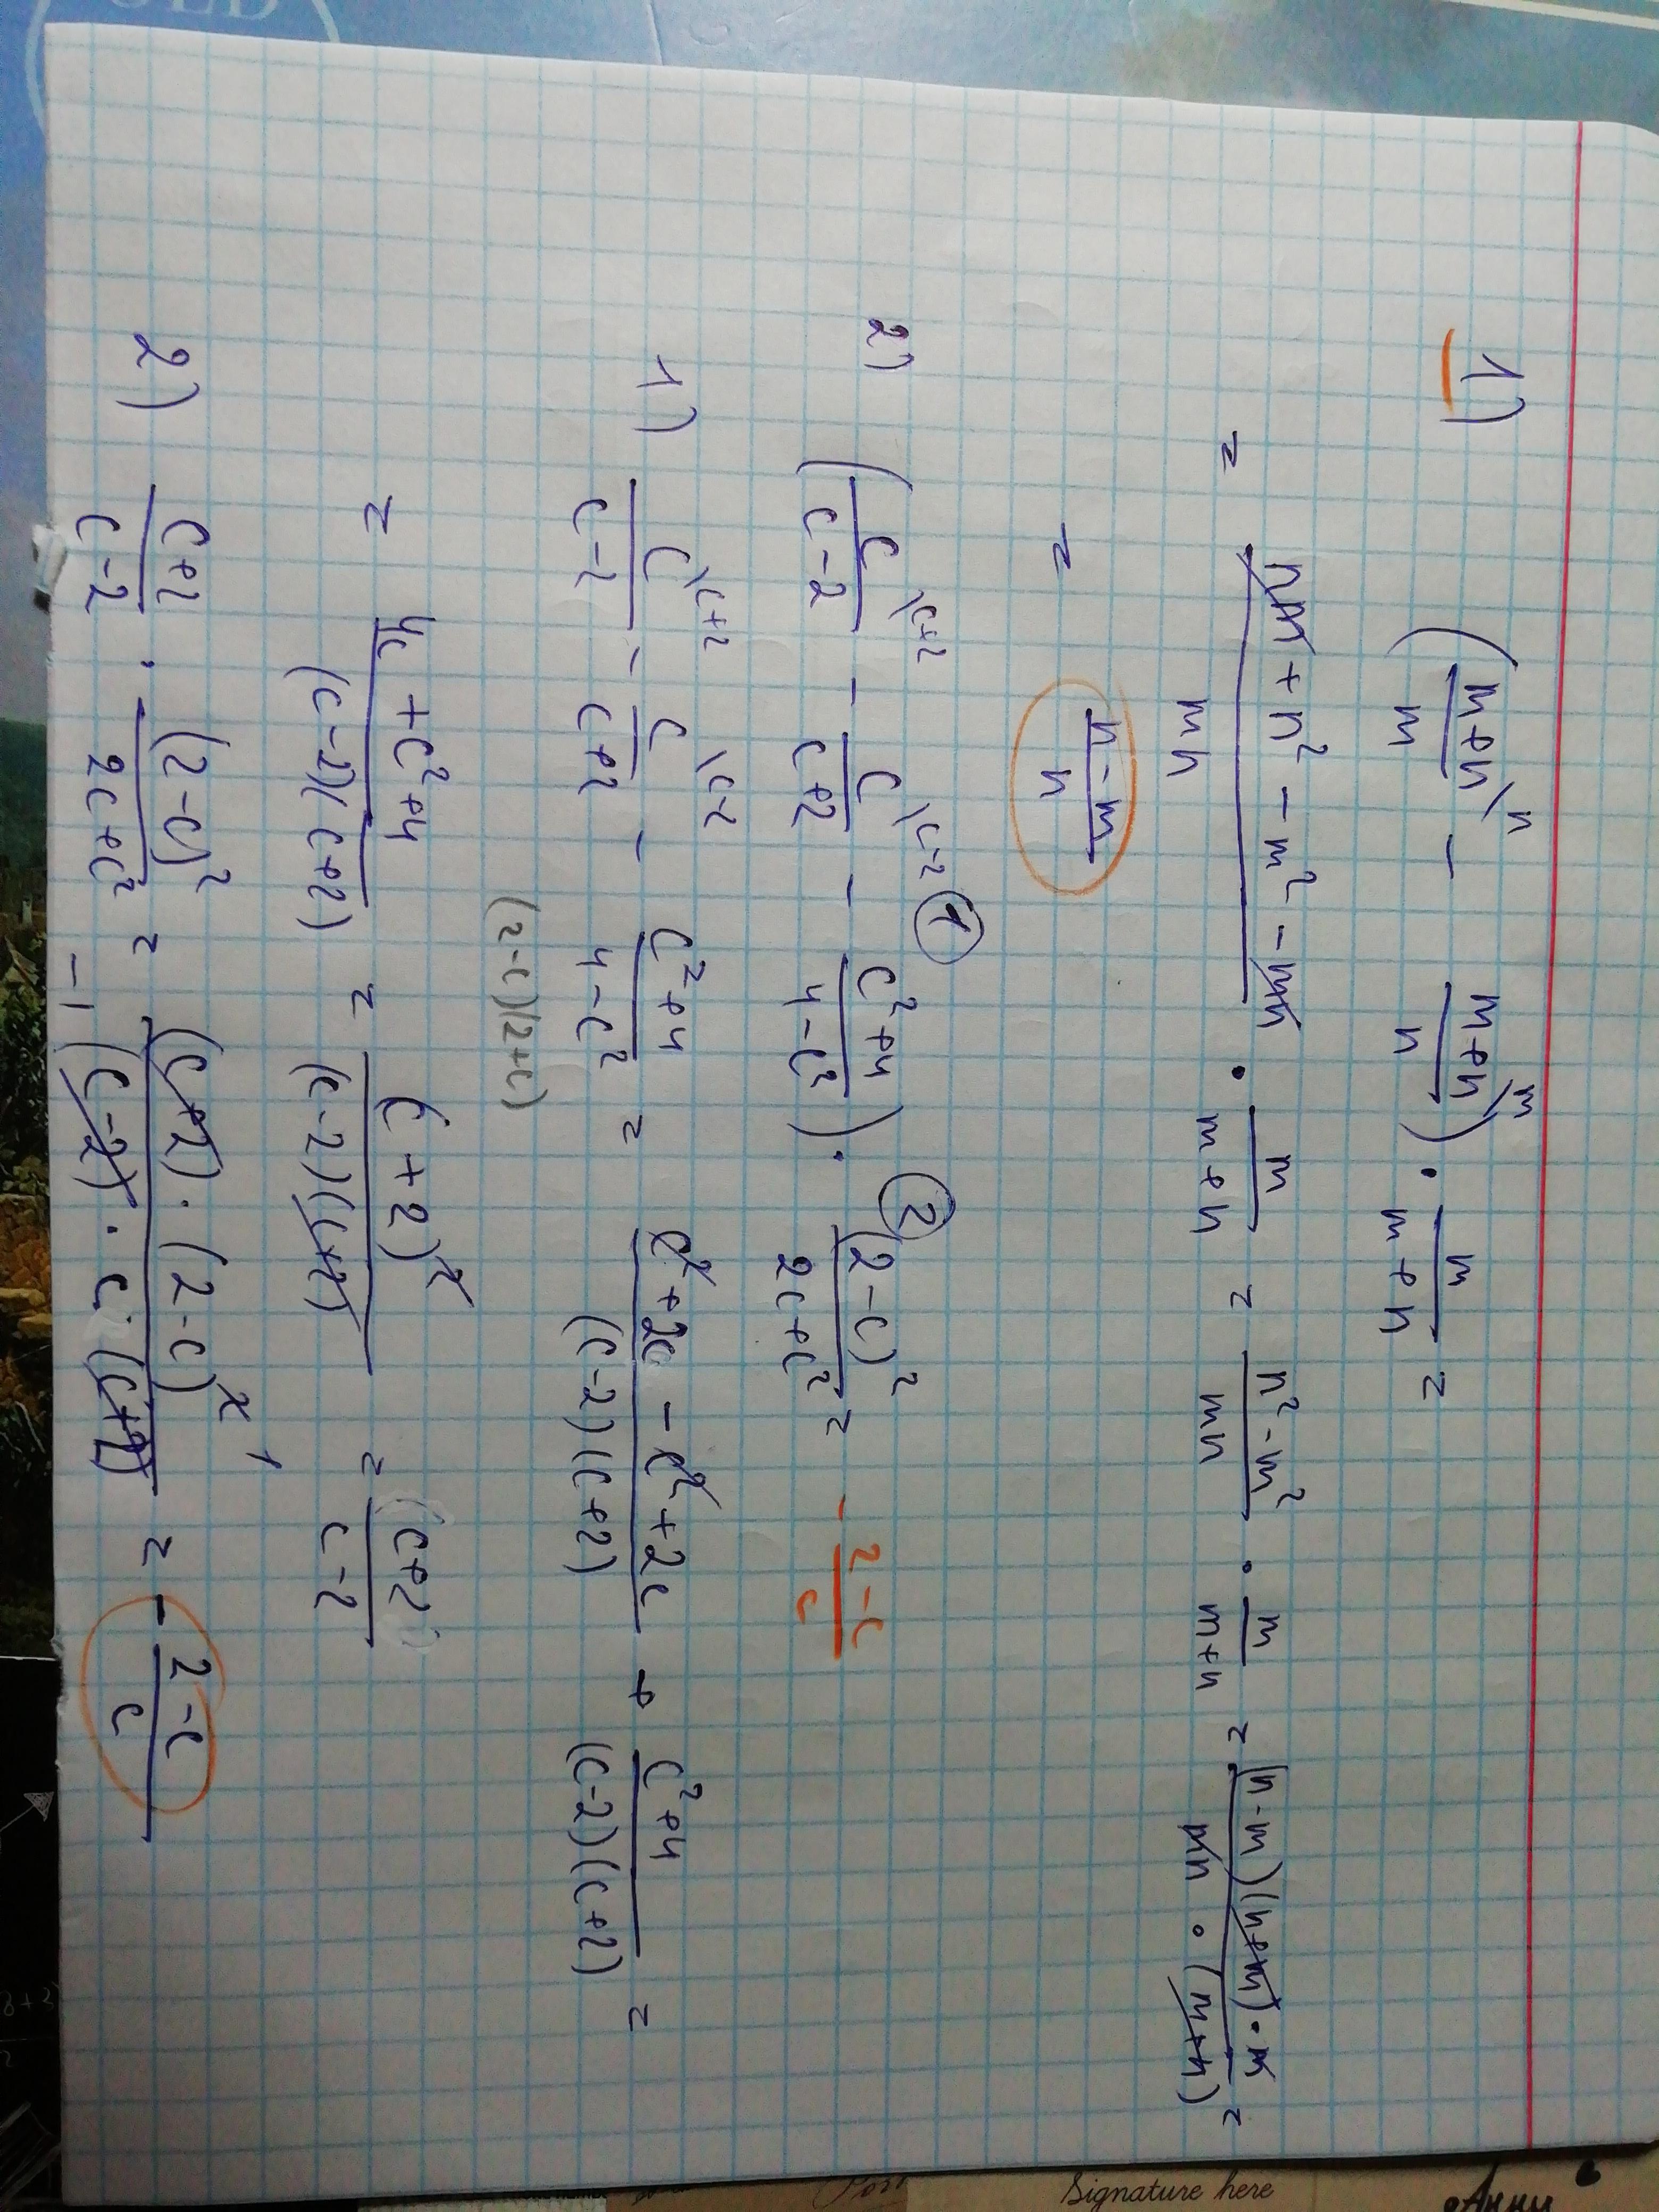 1) ((m+n)/m \n - (m+n)/n \m) · m/(m+n) =
= (nm + n² - m² - mn)/(mn) · m/(m+n) = (n² - m²)/(mn) · m/(m+n) = ((n-m)(n+m) · m)/(mn · (m+n)) =
= (n-m)/n
2) (c/(c-2) \c+2 - c/(c+2) \c-2 ① - (c²+4)/(4-c²)) · ② (2-c)²/(2c+c²) = - (2-c)/c
1) c/(c-2) \c+2 - c/(c+2) \c-2 - (c²+4)/(4-c²) = (c²+2c - c²+2c)/((c-2)(c+2)) + (c²+4)/((c-2)(c+2)) =
(2-c)(2+c)
= (4c + c²+4)/((c-2)(c+2)) = (c+2)²/((c-2)(c+2)) = (c+2)/(c-2)
2) (c+2)/(c-2) · (2-c)²/(2c+c²) = ((c+2) · (2-c)² 1)/(-1 (c-2) · c · (c+2)) = - (2-c)/c
Signature here